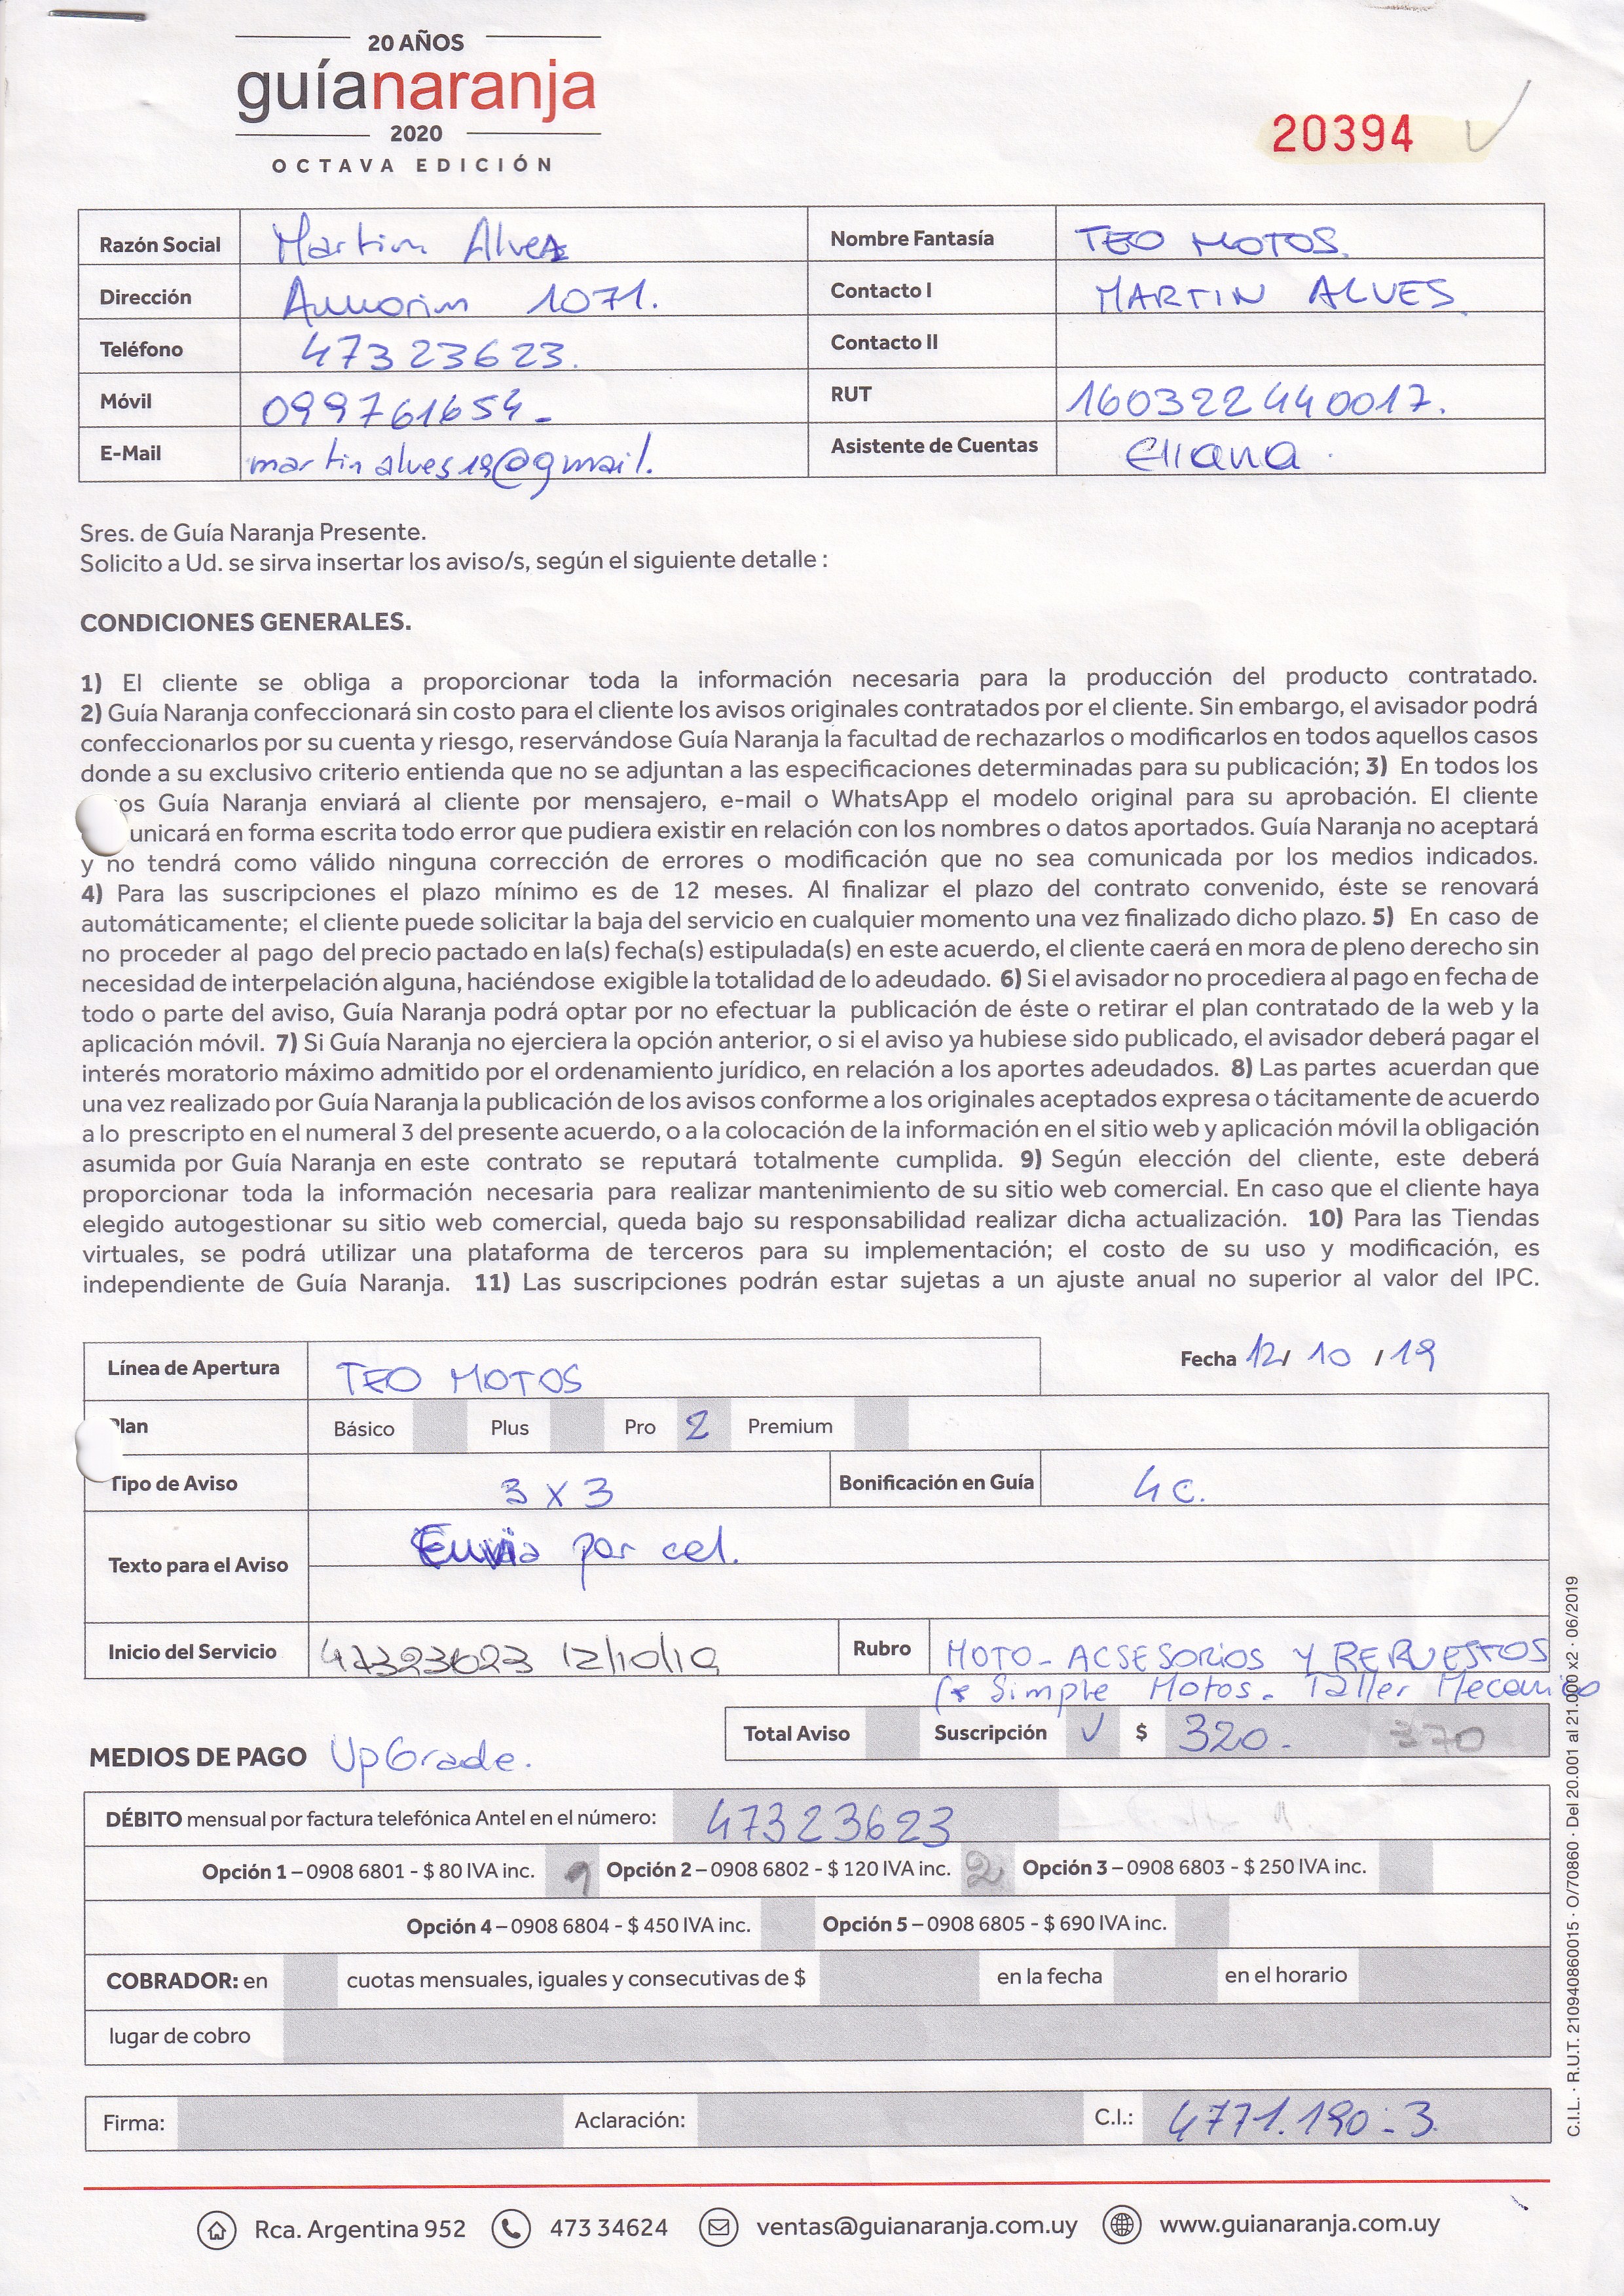 20 AÑOS
guíanaranja
2020
OCTAVA EDICIÓN
20394
Razón Social Martin Alves Nombre Fantasía TEO MOTOS.
Dirección Amorim 1071. Contacto I MARTIN ALVES
Teléfono 47323623. Contacto II
Móvil 099761654- RUT 160322440017.
E-Mail martinalves19@gmail. Asistente de Cuentas Eliana.
Sres. de Guía Naranja Presente.
Solicito a Ud. se sirva insertar los aviso/s, según el siguiente detalle :
CONDICIONES GENERALES.
1) El cliente se obliga a proporcionar toda la información necesaria para la producción del producto contratado.
2) Guía Naranja confeccionará sin costo para el cliente los avisos originales contratados por el cliente. Sin embargo, el avisador podrá
confeccionarlos por su cuenta y riesgo, reservándose Guía Naranja la facultad de rechazarlos o modificarlos en todos aquellos casos
donde a su exclusivo criterio entienda que no se adjuntan a las especificaciones determinadas para su publicación; 3) En todos los
os Guía Naranja enviará al cliente por mensajero, e-mail o WhatsApp el modelo original para su aprobación. El cliente
unicará en forma escrita todo error que pudiera existir en relación con los nombres o datos aportados. Guía Naranja no aceptará
y no tendrá como válido ninguna corrección de errores o modificación que no sea comunicada por los medios indicados.
4) Para las suscripciones el plazo mínimo es de 12 meses. Al finalizar el plazo del contrato convenido, éste se renovará
automáticamente; el cliente puede solicitar la baja del servicio en cualquier momento una vez finalizado dicho plazo. 5) En caso de
no proceder al pago del precio pactado en la(s) fecha(s) estipulada(s) en este acuerdo, el cliente caerá en mora de pleno derecho sin
necesidad de interpelación alguna, haciéndose exigible la totalidad de lo adeudado. 6) Si el avisador no procediera al pago en fecha de
todo o parte del aviso, Guía Naranja podrá optar por no efectuar la publicación de éste o retirar el plan contratado de la web y la
aplicación móvil. 7) Si Guía Naranja no ejerciera la opción anterior, o si el aviso ya hubiese sido publicado, el avisador deberá pagar el
interés moratorio máximo admitido por el ordenamiento jurídico, en relación a los aportes adeudados. 8) Las partes acuerdan que
una vez realizado por Guía Naranja la publicación de los avisos conforme a los originales aceptados expresa o tácitamente de acuerdo
a lo prescripto en el numeral 3 del presente acuerdo, o a la colocación de la información en el sitio web y aplicación móvil la obligación
asumida por Guía Naranja en este contrato se reputará totalmente cumplida. 9) Según elección del cliente, este deberá
proporcionar toda la información necesaria para realizar mantenimiento de su sitio web comercial. En caso que el cliente haya
elegido autogestionar su sitio web comercial, queda bajo su responsabilidad realizar dicha actualización. 10) Para las Tiendas
virtuales, se podrá utilizar una plataforma de terceros para su implementación; el costo de su uso y modificación, es
independiente de Guía Naranja. 11) Las suscripciones podrán estar sujetas a un ajuste anual no superior al valor del IPC.
Línea de Apertura TEO MOTOS Fecha 12/ 10 /19
Plan Básico Plus Pro 2 Premium
Tipo de Aviso 3 x 3 Bonificación en Guía 4 c.
Texto para el Aviso Envia por cel.
Inicio del Servicio 47323623 12/10/19 Rubro MOTO- ACSESORIOS Y REPUESTOS
Simple Motos. Taller Mecanico
Total Aviso Suscripción ✓ $ 320.- 370
MEDIOS DE PAGO UpGrade.
DÉBITO mensual por factura telefónica Antel en el número: 47323623
Opción 1 – 0908 6801 - $ 80 IVA inc. 1 Opción 2 – 0908 6802 - $ 120 IVA inc. 2 Opción 3 – 0908 6803 - $ 250 IVA inc.
Opción 4 – 0908 6804 - $ 450 IVA inc. Opción 5 – 0908 6805 - $ 690 IVA inc.
COBRADOR: en cuotas mensuales, iguales y consecutivas de $ en la fecha en el horario
lugar de cobro
Firma: Aclaración: C.I.: 4771.190-3
C.I.L. · R.U.T. 210940860015 · O/70860 · Del 20.001 al 21.000 x2 · 06/2019
Rca. Argentina 952 473 34624 ventas@guianaranja.com.uy www.guianaranja.com.uy